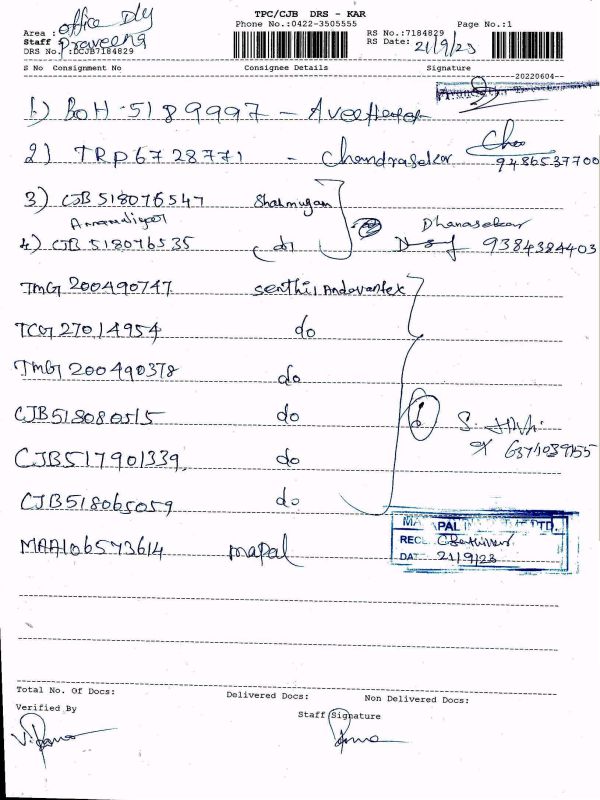 TPC/CJB DRS - KAR
Phone No.:0422-3505555 Page No.:1
Area : office Dly
Staff : Praveena
DRS No.:DCJB7184829
RS No.:7184829
RS Date: 21/9/23
S No Consignment No Consignee Details Signature
20220604
1) BOH 5189997 -
2) TRP 6728771 - Chandrasekar 9486537700
3) CJB 518076547 Shanmugan
4) CJB 518076535 do Dhanasekar 9384384403
TMG 200490747 senthil Andavantex
TCG 27014954 do
TMG 200490378 do
CJB 518080515 do
CJB 517901339 do
CJB 518065059 do
MAA106573614 mapal
DATE 21/9/23
Total No. Of Docs: Delivered Docs: Non Delivered Docs:
Verified By Staff Signature